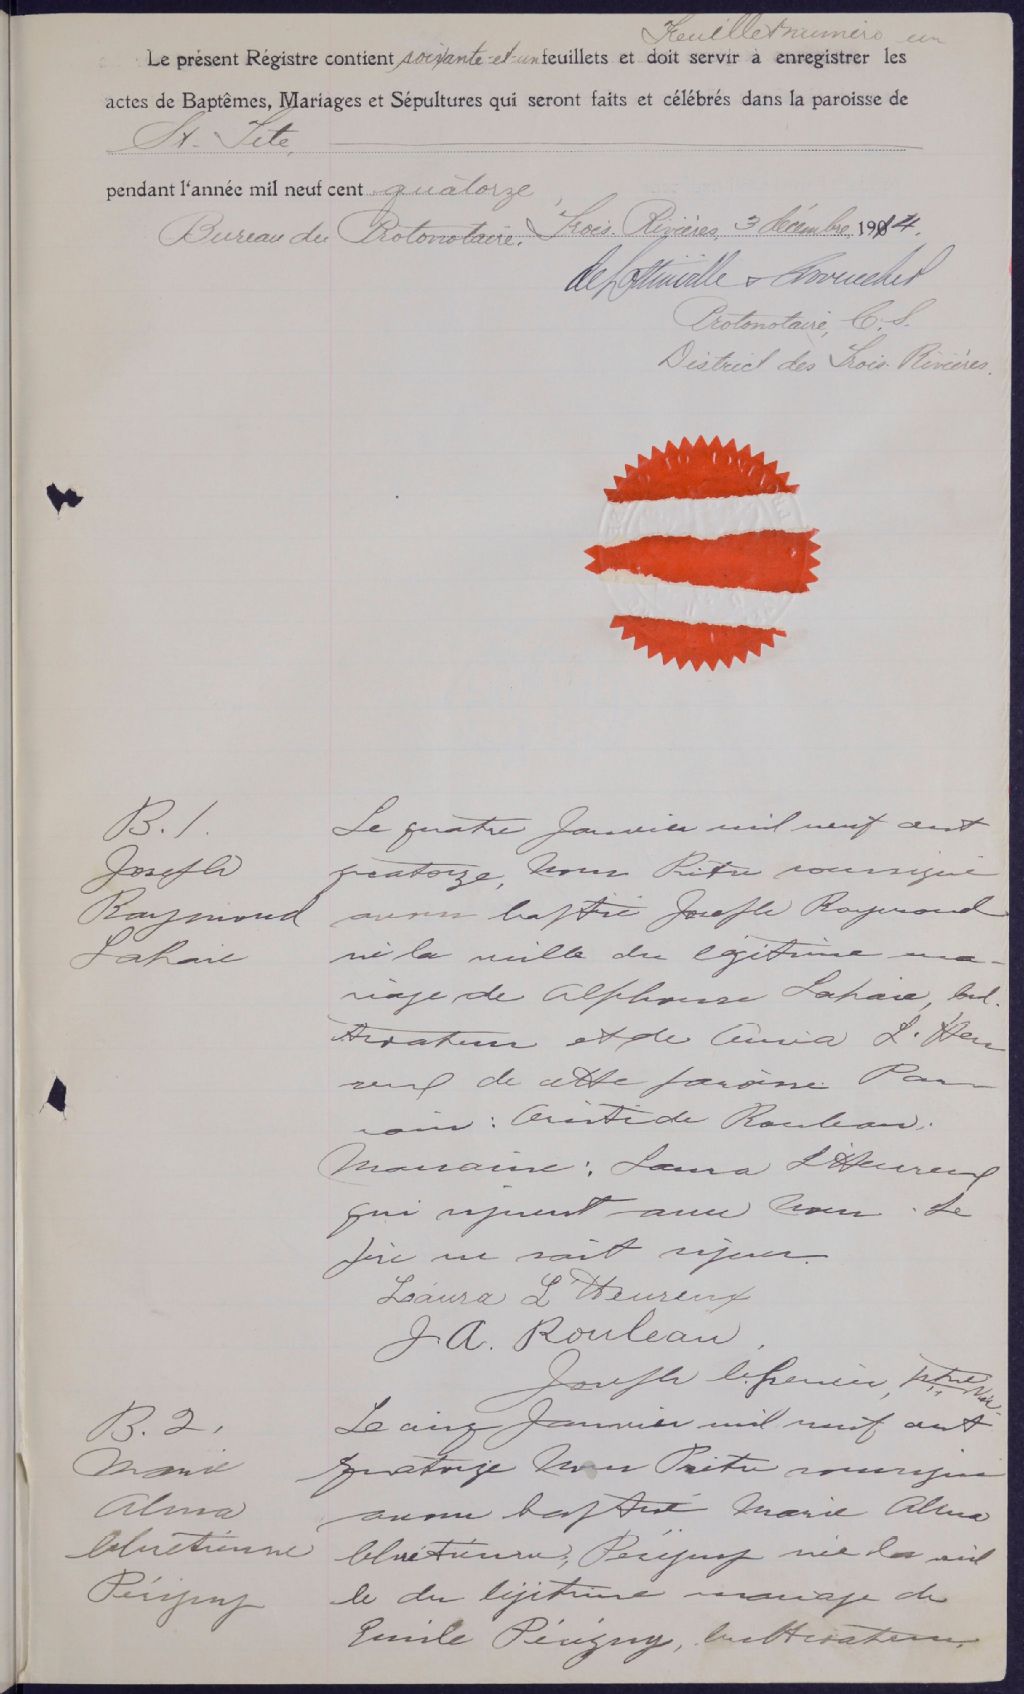 Feuillet numéro un
Le présent Régistre contient soixante-et-un feuillets et doit servir à enregistrer les
actes de Baptêmes, Mariages et Sépultures qui seront faits et célébrés dans la paroisse de
St. Tite,
pendant l'année mil neuf cent quatorze,
Bureau du Protonotaire, Trois-Rivières, 3 décembre, 1914.
Protonotaire, C. S.
District des Trois-Rivières.
B. 1.
Joseph
Raymond
Lahaie
Le quatre Janvier mil neuf cent
quatorze, Nous Prêtre soussigné
avons baptisé Joseph Raymond
né la veille du légitime ma-
riage de Alphonse Lahaie, cul-
tivateur et de Anna L'Heu
reux de cette paroisse. Par
rain : Aristide Rouleau.
Marraine : Laura L'Heureux
qui signent avec Nous. Le
père ne sait signer.
Laura L'Heureux
J. A. Rouleau.
Joseph Grenier, Ptre Vic.
B. 2.
Marie
Alma
Chrétienne
Périgny
Le cinq Janvier mil neuf cent
quatorze Nous Prêtre soussigné
avons baptisé Marie Alma
Chrétienne, Périgny née la veil
le du légitime mariage de
Emile Périgny, cultivateur,